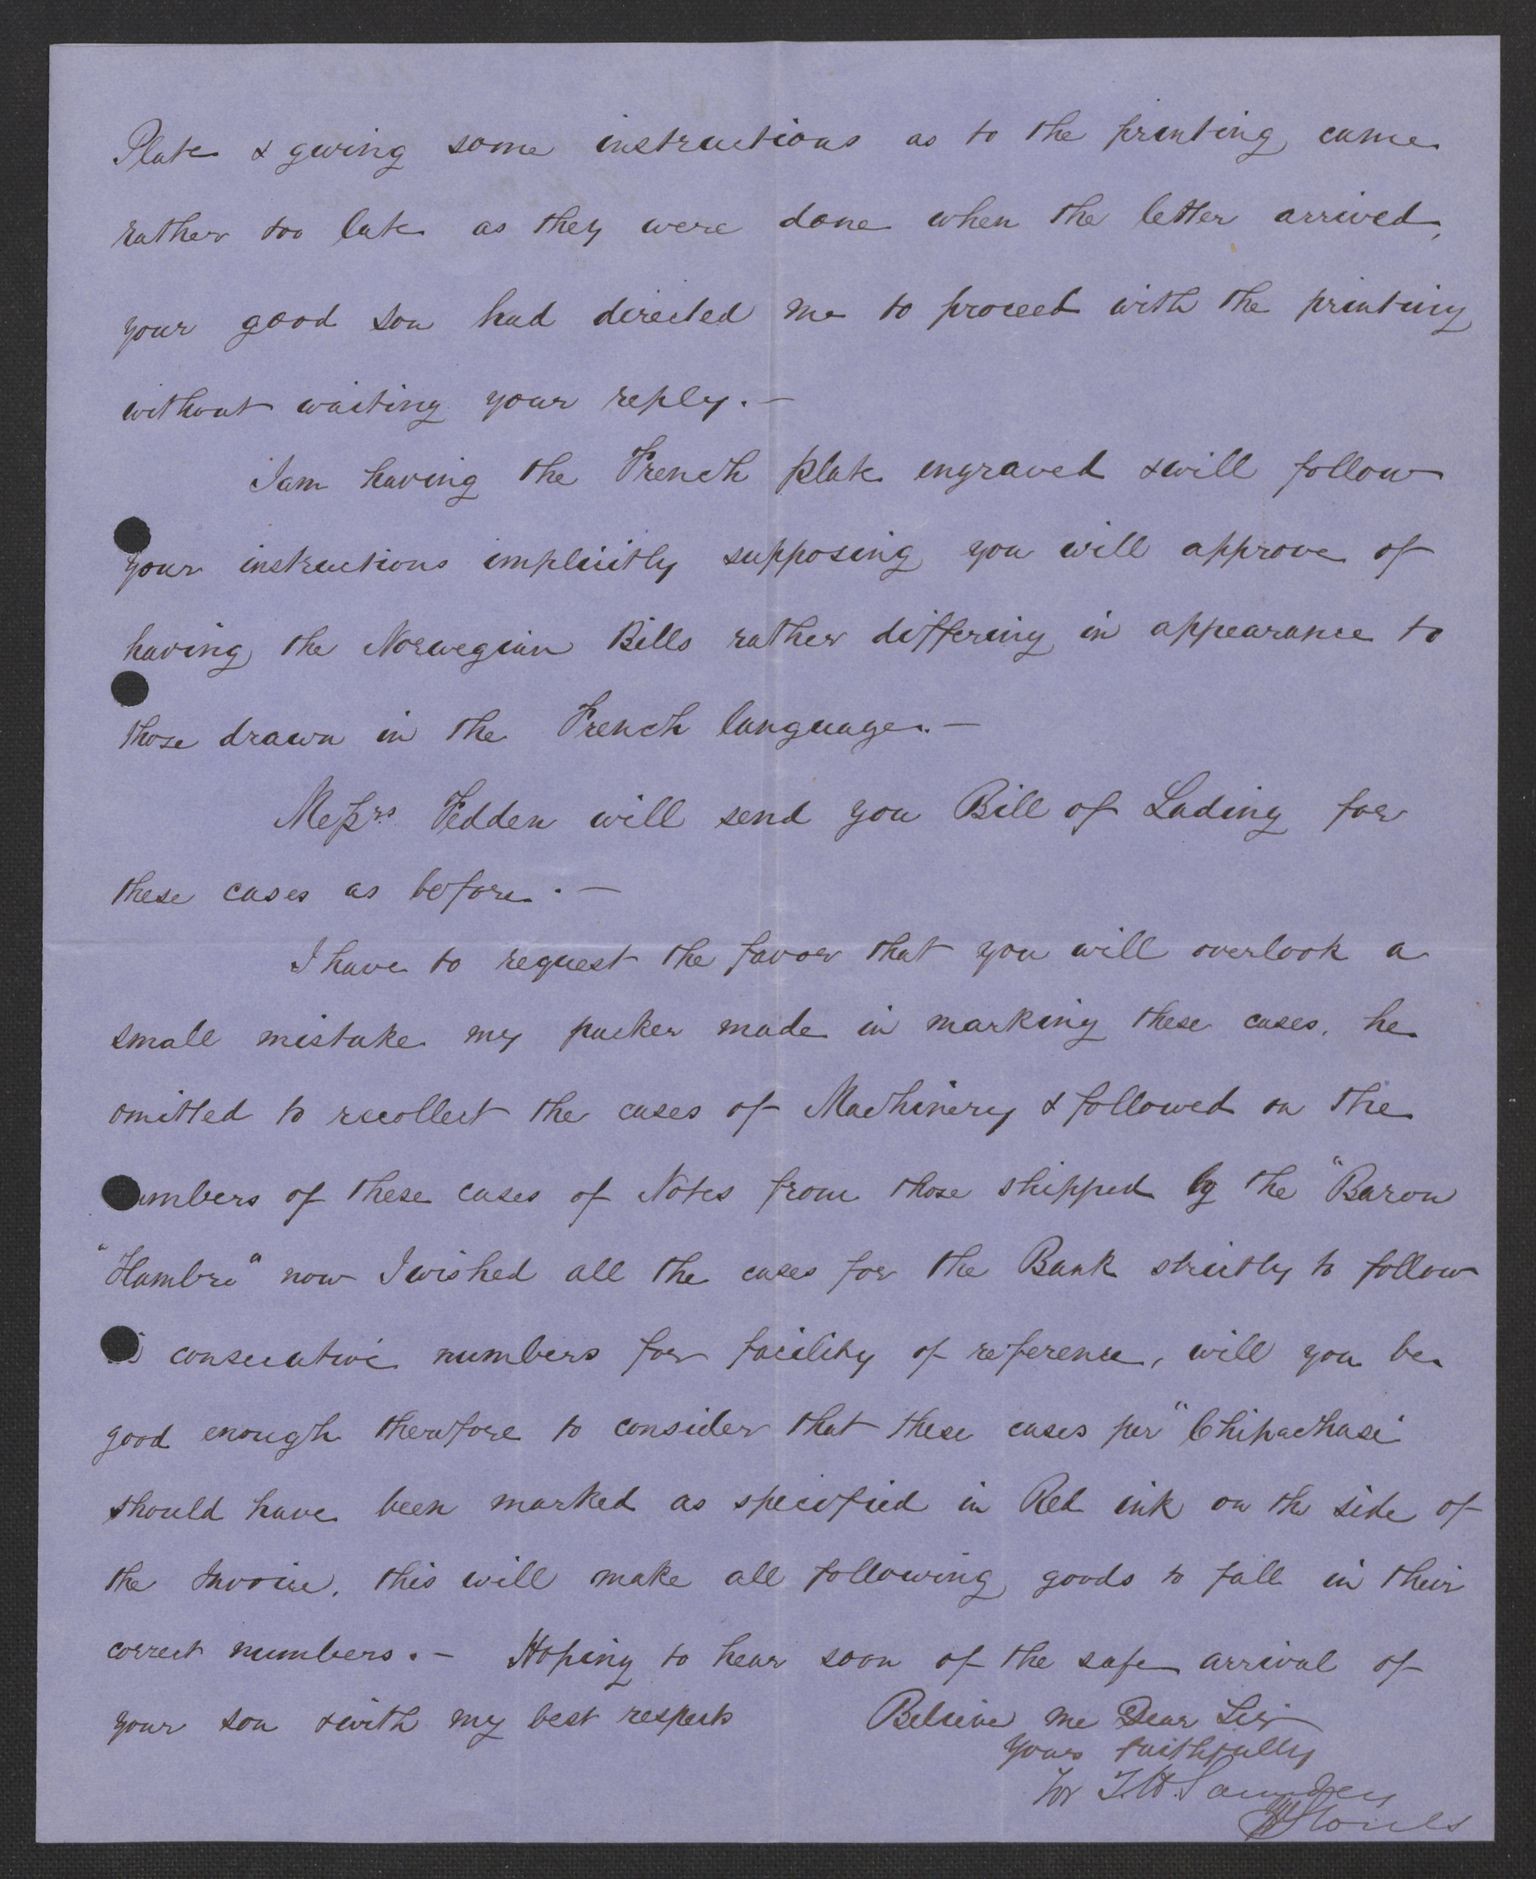 Plate & giving some instructions as to the printing, came
rather too late as they were done when the letter arrived,
your good son had directed me to proceed with the printing
without waiting your reply. —
I am having the French plate engraved & will follow
your instructions implicitly supposing you will approve of
having the Norwegian Bills rather differing in appearance to
those drawn in the French language. —
Messrs Fedden will send you Bill of Lading for
these cases as before. —
I have to request the favor that you will overlook a
small mistake my packer made in marking these cases, he
omitted to recollect the cases of Machinery & followed on the
umbers of these cases of Notes from those shipped by the "Baron
"Hambro" now I wished all the cases for the Bank strictly to follow
consecutive numbers for facility of reference, will you be
good enough therefore to consider that these cases per "Chipchase"
should have been marked as specified in Red ink on the side of
the Invoice, this will make all following goods to fall in their
correct numbers. — Hoping to hear soon of the safe arrival of
your son & with my best respects Believe me Dear Sir
Yours faithfully
for T. H. Saunders